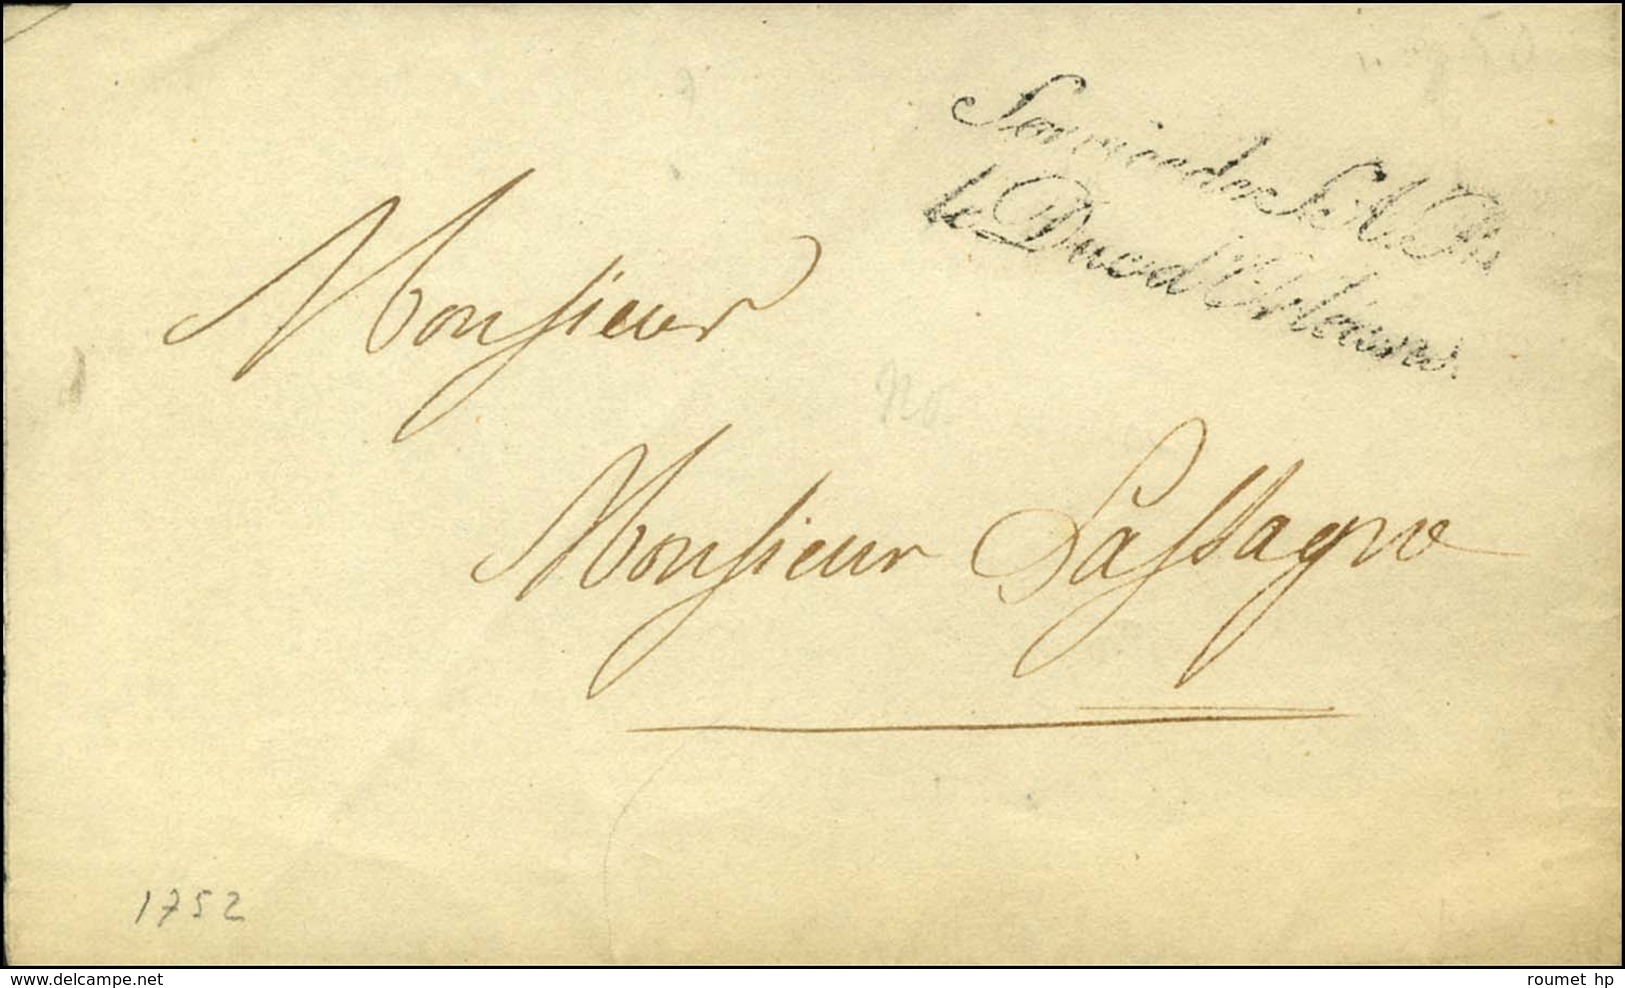 Service de S. A. R.
le Duc d'Orléans.
Monsieur
No.
Monsieur Lassagne
1752
delcampe.net
roumet hp